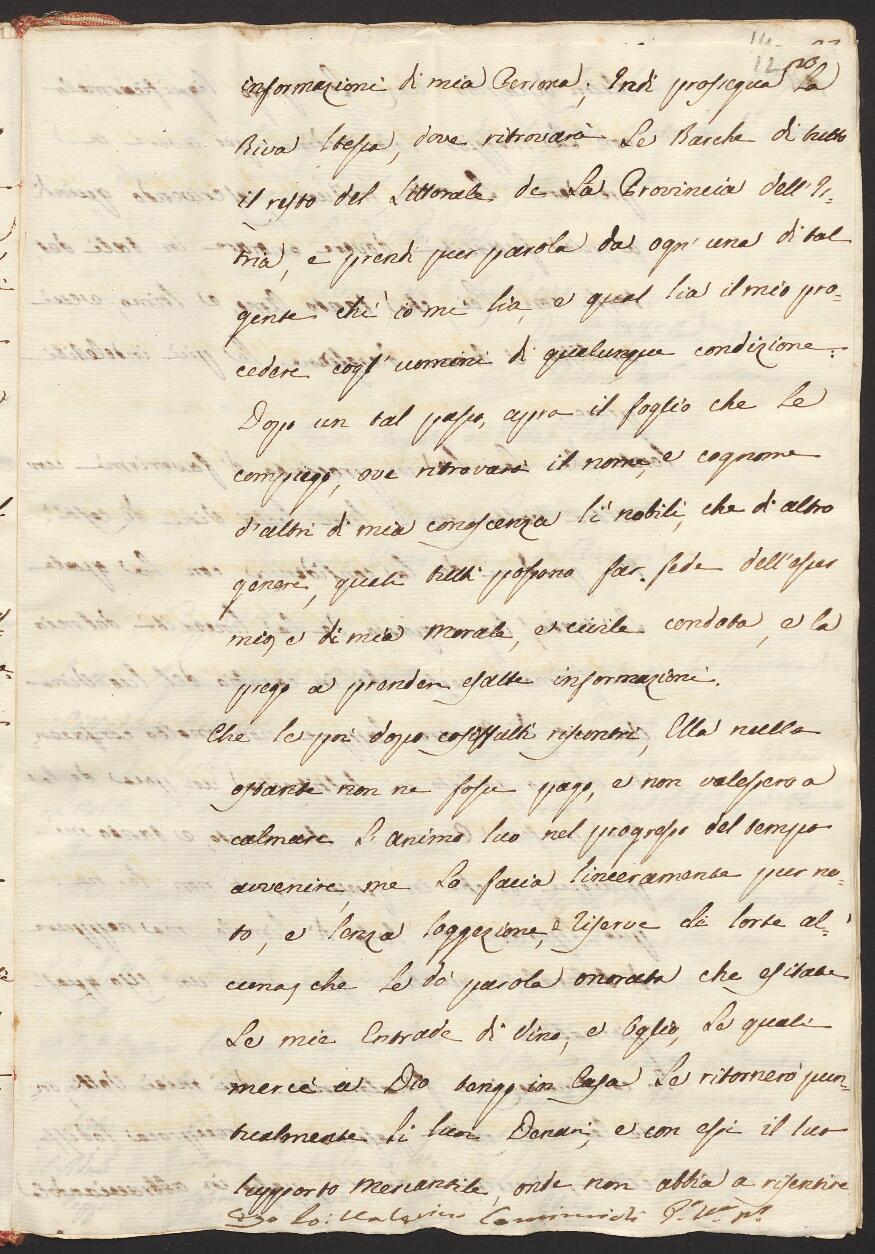 informazioni di mia Persona, Indi prosiegua La
Riva stessa, dove ritrovarà Le Barche di tutto
il resto del Littorale de La Provincia dell'Is-
tria, e prendi pur parola da ogn'una di tal
gente chi io mi sia, e qual sia il mio pro-
cedere cogl'uomini di qualunque condizione.
Dopo un tal passo, apra il foglio che Le
compiego, ove ritrovarà il nome, e cognome
d'altri di mia conoscenza sì nobili, che di altro
genere, quali tutti possono far fede dell'esser
mio, e di mia morale, e civile condota, e la
prego a prender esatte informazioni.
Che se poi dopo cosiffatti riscontri, Ella nulla
ostante non ne fosse pago, e non valessero a
calmare L'animo suo nel progresso del tempo
avvenire, me Lo facia sinceramente pur no-
to, e senza soggezione, e riserve di sorte al-
cuna, che Le dò parola onorata che esitate
Le mie Entrade di Vino, e Oglio, Le quali
mercè a Dio tengo in Casa Le ritornerò pun-
tualmente li suoi Denari, e con essi il suo
supporto mercantile, onde non abbia a risentire